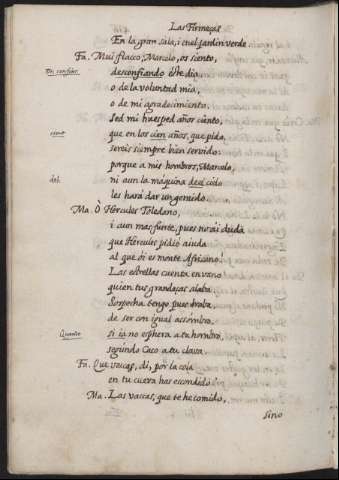 Las Firmezas
En la gran sala, i en el jardin verde
Fa. Mui flacco, Marcelo, os siento,
desconfiando este dia
o de la voluntad mia,
o de mi agradecimiento.
Sed mi huesped años ciento,
cient
que en los cien años, que pido,
sereis siempre bien servido:
porque a mis hombros, Marcelo,
del
ni aun la máquina deel cielo
les hará dar un gemido.
Ma. Ò Hercules Toledano,
i aun mas fuerte, pues no ai duda
que Hercules pidió aiuda
al que oi es monte Africano!
Las estrellas cuenta en vano
quien tus grandeças alaba.
Sospecha tengo pues braba,
de ser con igual assombro,
Quando
si ia no esphera a tu hombro,
segundo Caco a tu clava.
Fa. Que vaccas, di, por la cola
en tu cueva has escondido?
Ma. Las vaccas, que te he comido,
sino